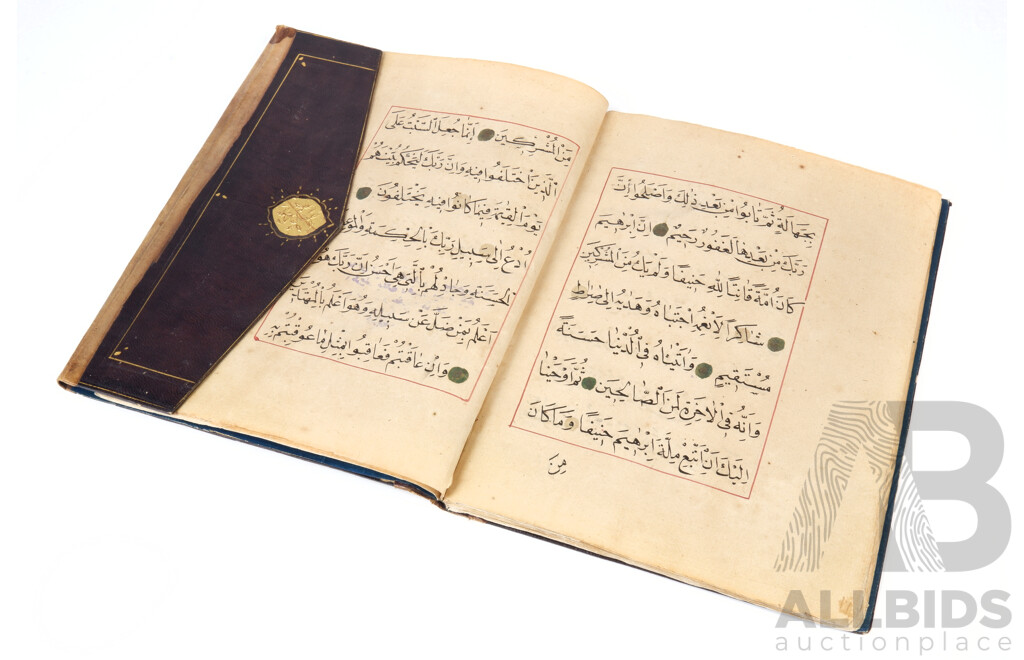 بِجَهَالَةٍ ثُمَّ تَابُوا مِنْ بَعْدِ ذٰلِكَ وَاَصْلَحُوا اِنَّ
رَبَّكَ مِنْ بَعْدِهَا لَغَفُورٌ رَحِيمٌ اِنَّ اِبْرٰهِيمَ
كَانَ اُمَّةً قَانِتًا لِلّٰهِ حَنِيفًا وَلَمْ يَكُ مِنَ الْمُشْرِكِينَ
شَاكِرًا لِاَنْعُمِهِ اجْتَبَاهُ وَهَدٰيهُ اِلٰى صِرَاطٍ
مُسْتَقِيمٍ وَاٰتَيْنَاهُ فِي الدُّنْيَا حَسَنَةً
وَاِنَّهُ فِي الْاٰخِرَةِ لَمِنَ الصَّالِحِينَ ثُمَّ اَوْحَيْنَا
اِلَيْكَ اَنِ اتَّبِعْ مِلَّةَ اِبْرٰهِيمَ حَنِيفًا وَمَا كَانَ
مِنَ
مِنَ الْمُشْرِكِينَ اِنَّمَا جُعِلَ السَّبْتُ عَلَى
الَّذِينَ اخْتَلَفُوا فِيهِ وَاِنَّ رَبَّكَ لَيَحْكُمُ بَيْنَهُمْ
يَوْمَ الْقِيٰمَةِ فِيمَا كَانُوا فِيهِ يَخْتَلِفُونَ
اُدْعُ اِلٰى سَبِيلِ رَبِّكَ بِالْحِكْمَةِ وَالْمَوْ
الْحَسَنَةِ وَجَادِلْهُمْ بِالَّتِي هِيَ اَحْسَنُ اِنَّ رَبَّكَ هُوَ
اَعْلَمُ بِمَنْ ضَلَّ عَنْ سَبِيلِهِ وَهُوَ اَعْلَمُ بِالْمُهْتَدِينَ
وَاِنْ عَاقَبْتُمْ فَعَاقِبُوا بِمِثْلِ مَا عُوقِبْتُمْ بِهِ
AB
ALLBIDS
auctionplace